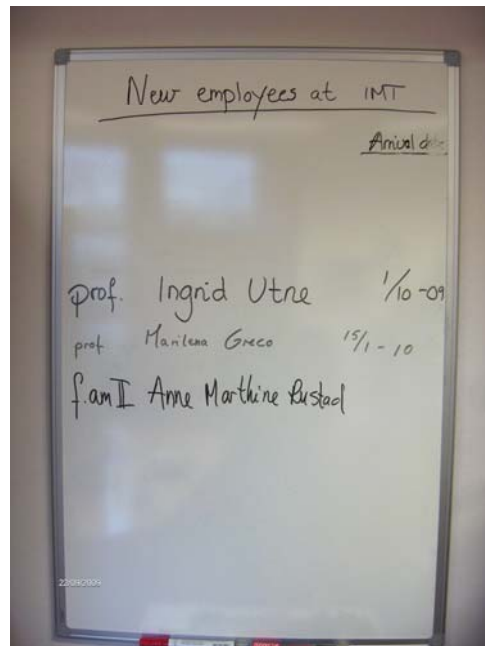 New employees at IMT
Arrival date
prof. Ingrid Utne 1/10 -09
prof. Marilena Greco 15/1 - 10
f.am II Anne Marthine Rustad
22/09/2009